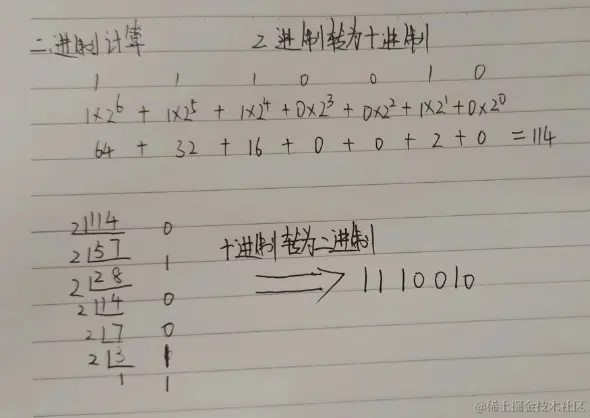 二进制计算 2进制转为十进制
1 1 1 0 0 1 0
1×2⁶ + 1×2⁵ + 1×2⁴ + 0×2³ + 0×2² + 1×2¹ + 0×2⁰
64 + 32 + 16 + 0 + 0 + 2 + 0 = 114
2 114 0
2 57 1
2 28 0
2 14 0
2 7 1
2 3 1
1 1
十进制转为二进制
1110010
@稀土掘金技术社区